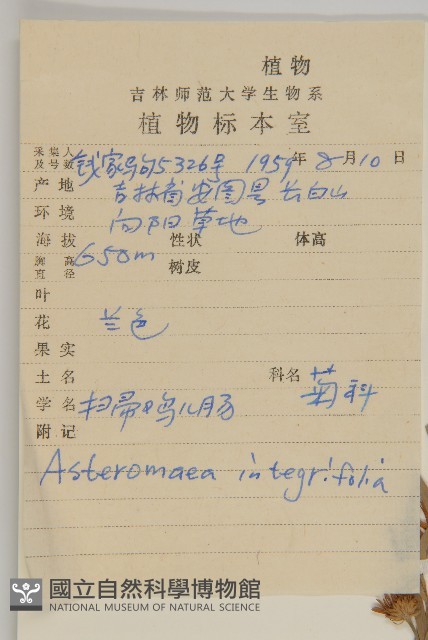 植物
吉林师范大学生物系
植物标本室
采集人及号数 钱家驹5326号 1959年8月10日
产地 吉林省安图县长白山
环境 向阳草地
海拔 650m 性状 体高
胸高直径 树皮
叶
花 兰色
果实
土名 科名 菊科
学名 扫帚鸡儿肠
附记
Asteromaea integrifolia
國立自然科學博物館
NATIONAL MUSEUM OF NATURAL SCIENCE